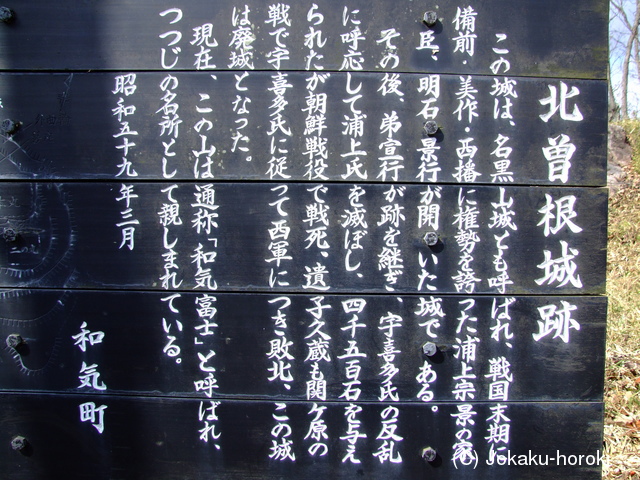 北曽根城跡
この城は、名黒山城とも呼ばれ、戦国末期に
備前・美作・西播に権勢を誇った浦上宗景の家
臣、明石景行が開いた城である。
その後、弟宣行が跡を継ぎ、宇喜多氏の反乱
に呼応して浦上氏を滅ぼし、四千五百石を与え
られたが朝鮮戦役で戦死、遺子久蔵も関ケ原の
戦で宇喜多氏に従って西軍につき敗北、この城
は廃城となった。
現在、この山は通称「和気富士」と呼ばれ、
つつじの名所として親しまれている。
昭和五十九年三月
和気町
(C) Jokaku-horoki